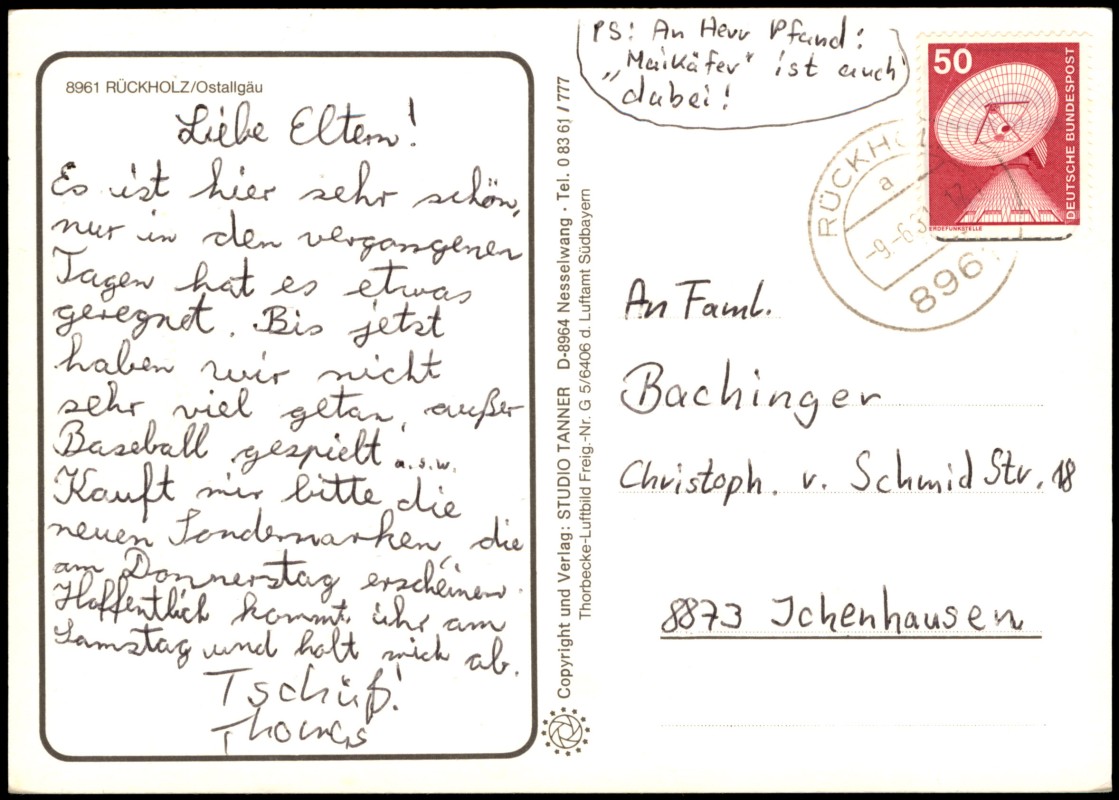 8961 RÜCKHOLZ/Ostallgäu
Liebe Eltern!
Es ist hier sehr schön,
nur in den vergangenen
Tagen hat es etwas
geregnet. Bis jetzt
haben wir nicht
sehr viel getan, außer
Baseball gespielt u.s.w.
Kauft mir bitte die
neuen Sondermarken, die
am Donnerstag erscheinen.
Hoffentlich kommt ihr am
Samstag und holt mich ab.
Tschüß!
Thomas
Copyright und Verlag: STUDIO TANNER D-8964 Nesselwang · Tel. 0 83 61 / 777
Thorbecke-Luftbild Freig.-Nr. G 5/6406 d. Luftamt Südbayern
PS: An Herr Pfand:
„Maikäfer“ ist auch
dabei!
50
DEUTSCHE BUNDESPOST
ERDEFUNKSTELLE
RÜCKHO
a
-9.-6.
8961
An Faml.
Bachinger
Christoph. v. Schmid Str. 18
8873 Ichenhausen